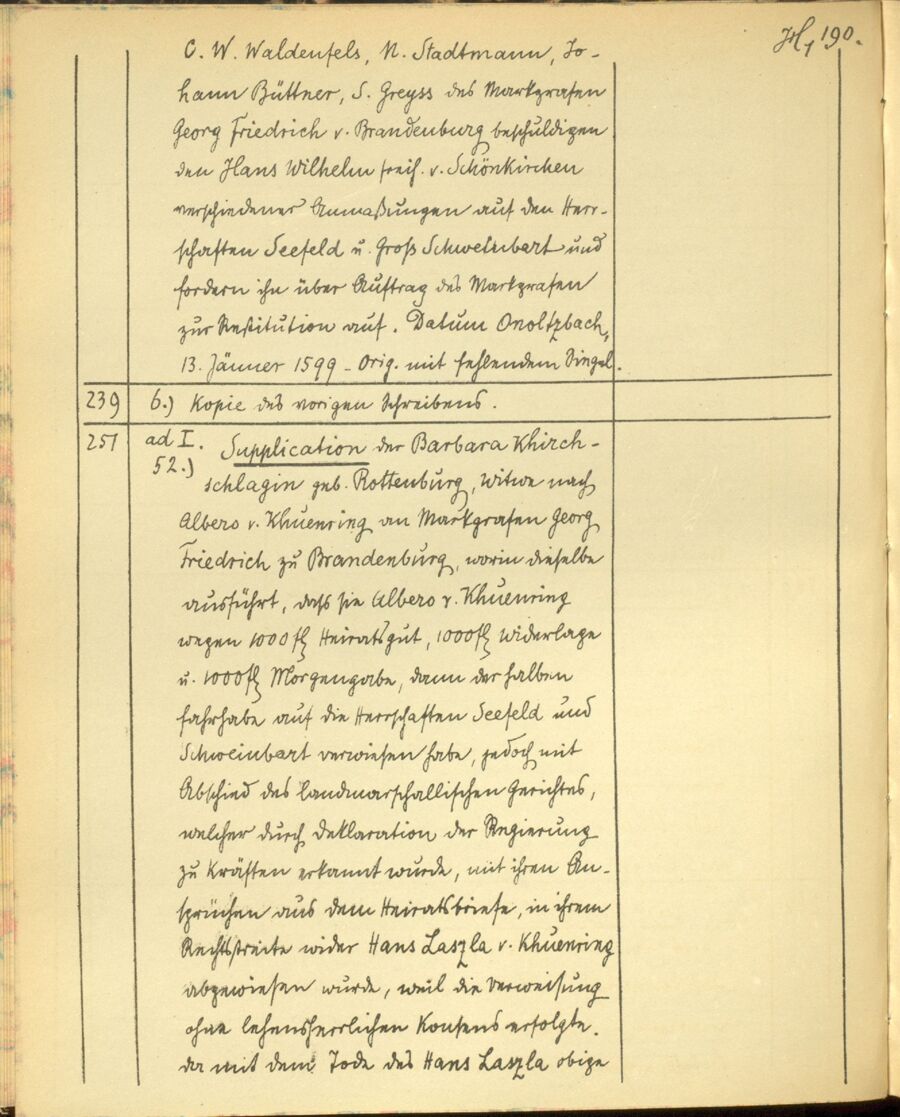 H, 190.
C. W. Waldenfels, N. Stadtmann, Jo-
hann Büttner, S. Greyss des Markgrafen
Georg Friedrich v. Brandenburg beschuldigen
den Hans Wilhelm freih. v. Schönkirchen
verschiedener Anmaßungen auf den Herr-
schaften Seefeld u. Groß Schweinbart und
fordern ihn über Auftrag des Markgrafen
zur Restitution auf. Datum Onoltzbach,
13. Jänner 1599 - Orig. mit fehlendem Singel.
239 6.) Kopie des vorigen Schreibens.
251 ad I. 52.) Supplication der Barbara Khirch-
schlagin geb. Rottenburg, Witwe nach
Albero v. Khuenring an Markgrafen Georg
Friedrich zu Brandenburg, worin dieselbe
ausführt, dass sie Albero v. Khuenring
wegen 1000 fl Heiratsgut, 1000 fl Widerlage
u. 1000 fl Morgengabe, dann der halben
fahrhabe auf die Herrschaften Seefeld und
Schweinbart verwiesen habe, jedoch mit
Abschied des landmarschallischen Gerichtes,
welcher durch Deklaration der Regierung
zu Kräften erkannt wurde, mit ihren An-
sprüchen aus dem Heiratsbriefe, in ihrem
Rechtsstreite wider Hans Laszla v. Khuenring
abgewiesen wurde, weil die Verweisung
ohne lehensherrlichen Konsens erfolgte.
da mit dem Tode des Hans Laszla obige